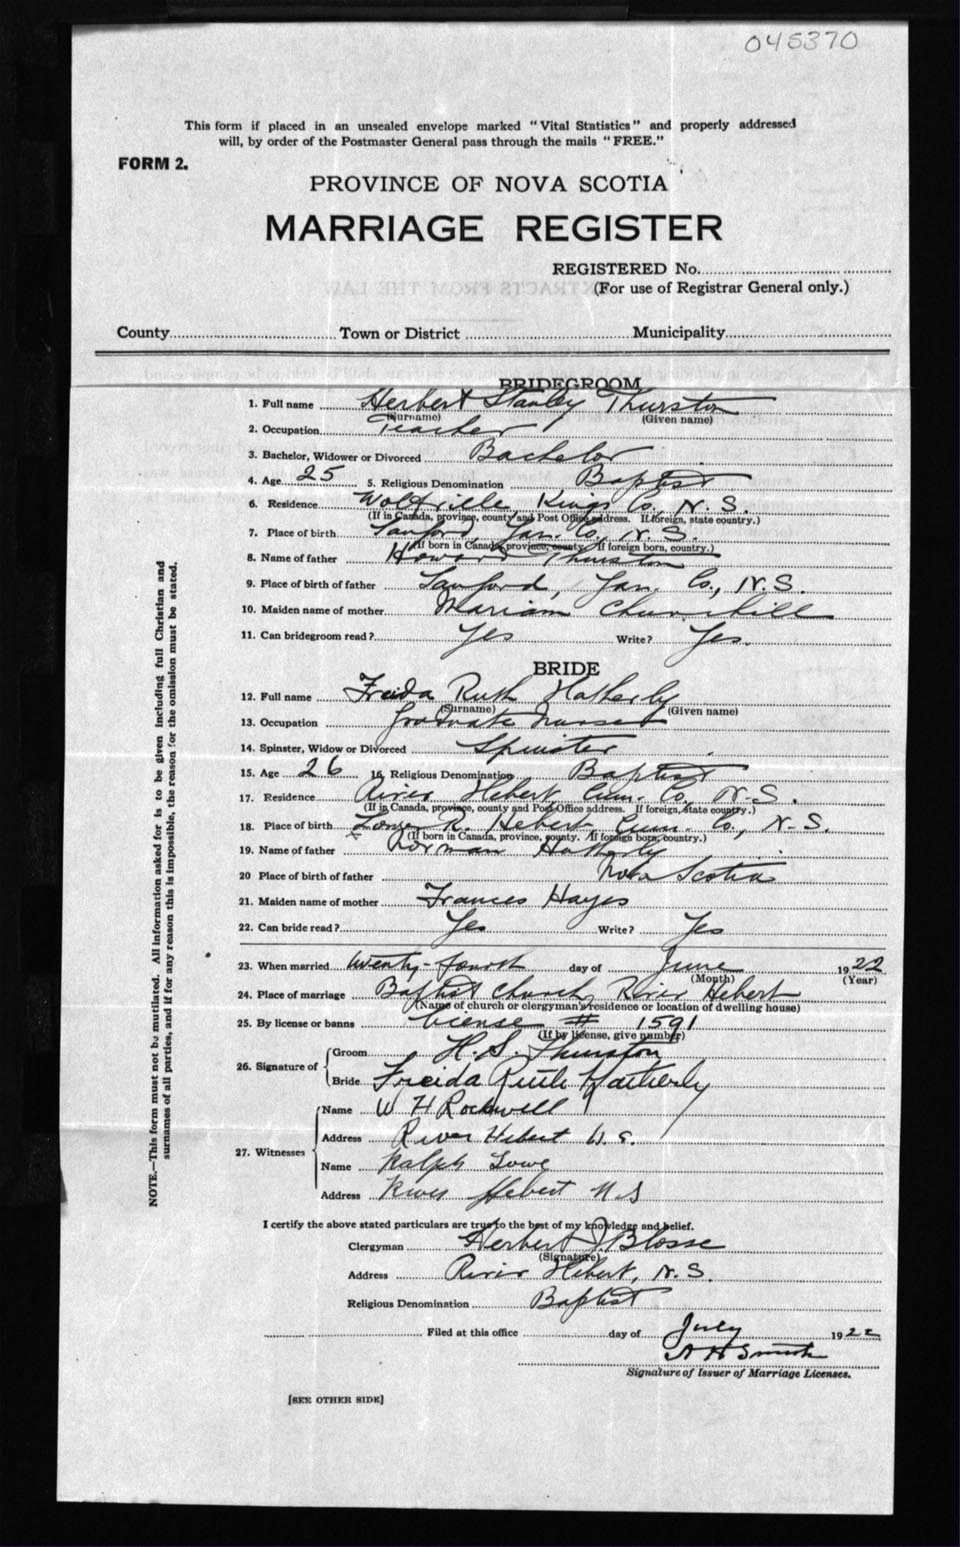 045370
This form if placed in an unsealed envelope marked "Vital Statistics" and properly addressed
will, by order of the Postmaster General pass through the mails "FREE."
FORM 2.
PROVINCE OF NOVA SCOTIA
MARRIAGE REGISTER
REGISTERED No.
(For use of Registrar General only.)
County Town or District Municipality
BRIDEGROOM
1. Full name Herbert Stanley Thurston
(Surname) (Given name)
2. Occupation Teacher
3. Bachelor, Widower or Divorced Bachelor
4. Age 25 5. Religious Denomination Baptist
6. Residence Wolfville, Kings Co., N.S.
(If in Canada, province, county and Post Office address. If foreign, state country.)
7. Place of birth Sanford, Yar. Co., N.S.
(If born in Canada, province, county. If foreign born, country.)
8. Name of father Howard Thurston
9. Place of birth of father Sanford, Yar. Co., N.S.
10. Maiden name of mother Mariam Churchill
11. Can bridegroom read? Yes Write? Yes.
BRIDE
12. Full name Freida Ruth Hatherly
(Surname) (Given name)
13. Occupation Graduate Nurse
14. Spinster, Widow or Divorced Spinster
15. Age 26 16. Religious Denomination Baptist
17. Residence River Hebert, Cum. Co., N.S.
(If in Canada, province, county and Post Office address. If foreign, state country.)
18. Place of birth Lower R. Hebert, Cum. Co., N.S.
(If born in Canada, province, county. If foreign born, country.)
19. Name of father Norman Hatherly
20 Place of birth of father Nova Scotia
21. Maiden name of mother Frances Hayes
22. Can bride read? Yes Write? Yes
23. When married twenty-fourth day of June 1922
(Month) (Year)
24. Place of marriage Baptist Church, River Hebert
(Name of church or clergyman's residence or location of dwelling house)
25. By license or banns License # 1591
(If by license, give number)
26. Signature of Groom H. S. Thurston
Bride Freida Ruth Hatherly
27. Witnesses Name W H Rockwell
Address River Hebert N.S.
Name Ralph Lowe
Address River Hebert N S
I certify the above stated particulars are true to the best of my knowledge and belief.
Clergyman Herbert J. Blosse
(Signature)
Address River Hebert, N.S.
Religious Denomination Baptist
Filed at this office day of July 1922
Smith
Signature of Issuer of Marriage Licenses.
[SEE OTHER SIDE]
NOTE.—This form must not be mutilated. All information asked for is to be given including full Christian and
surnames of all parties, and if for any reason this is impossible, the reason for the omission must be stated.